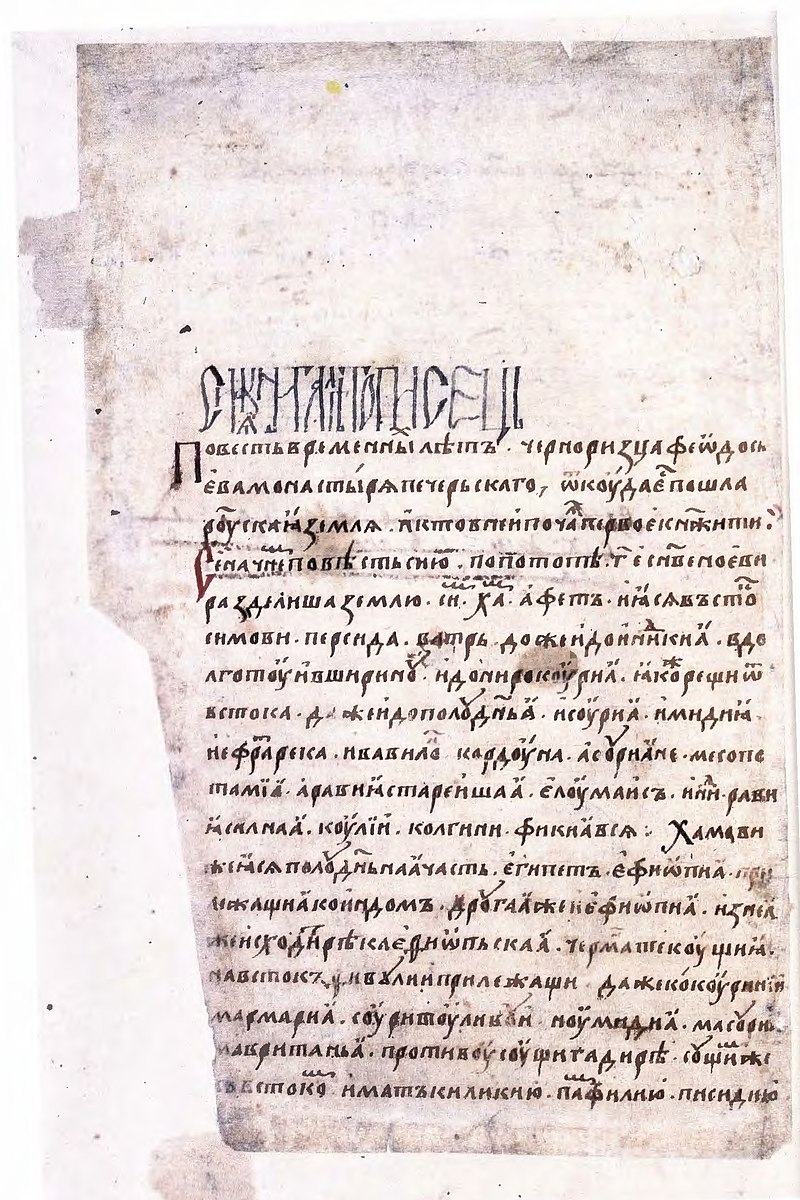 Повесть временны̑ лѣтъ · черноризца феѡдось
ева монастырѧ печерьскаго, ѿкоуда е̑ пошла
роускаꙗ землѧ · и кто в неи поча̑ первое кнѧжити :
Се начнемъ повѣсть сию · по потопѣ · г҃ е сн҃ве ноеви
раздѣлиша землю · си · ха · афетъ · ꙗсѧ въсто̑
симови · персида · ватрь · доже и до иньдикиꙗ · в до
лготоу и в ширину · и до нирокоуриꙗ · ꙗкоже рещи ѿ
встока · даже и до полоудньꙗ · исоуриꙗ · имидиꙗ
иефраⷮ река · и вавило̑ кордоуна · асоуриꙗне · месопо
тамїꙗ · аравиꙗ стареишаꙗ · елоумаисъ · инди · рави
ꙗ силнаꙗ · коулїи · колгини · фикиꙗ всѧ : Хамови
же ꙗсѧ полоудньнаꙗ часть · египетъ · ефиѡпиꙗ · при
лежащиꙗ ко индомъ · дроугаꙗ же ефиѡпиꙗ · из неꙗ
же исходи̑ рѣка ефиѡпьскаꙗ · чермна текоущиꙗ ·
на встокъ · ливулии прилежащи даже ко коуриниꙗ
мармариꙗ · соурити оуливоуи · ноумидиꙗ · масоури
мавританьꙗ · противоу соущи гадирѣ · соущи же
въстоко̑ имать киликию · памфилию · писидию